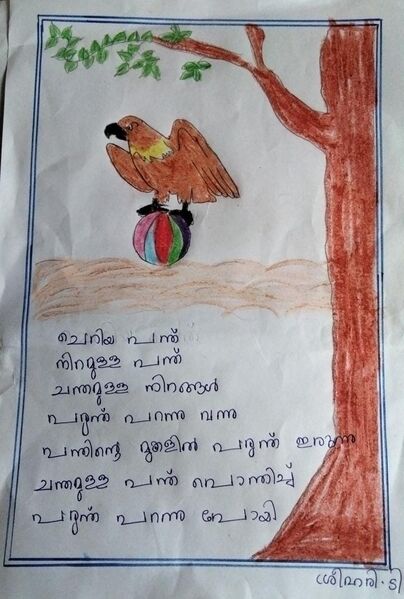 ചെറിയ പന്ത്
നിറമുള്ള പന്ത്
ചന്തമുള്ള നിറങ്ങൾ
പരുന്ത് പറന്നു വന്നു
പന്തിന്റെ മുകളിൽ പരുന്ത് ഇരുന്നു
ചന്തമുള്ള പന്ത് പൊന്തിച്ച്
പരുന്ത് പറന്നു പോയി
ശ്രീഹരി. ടി